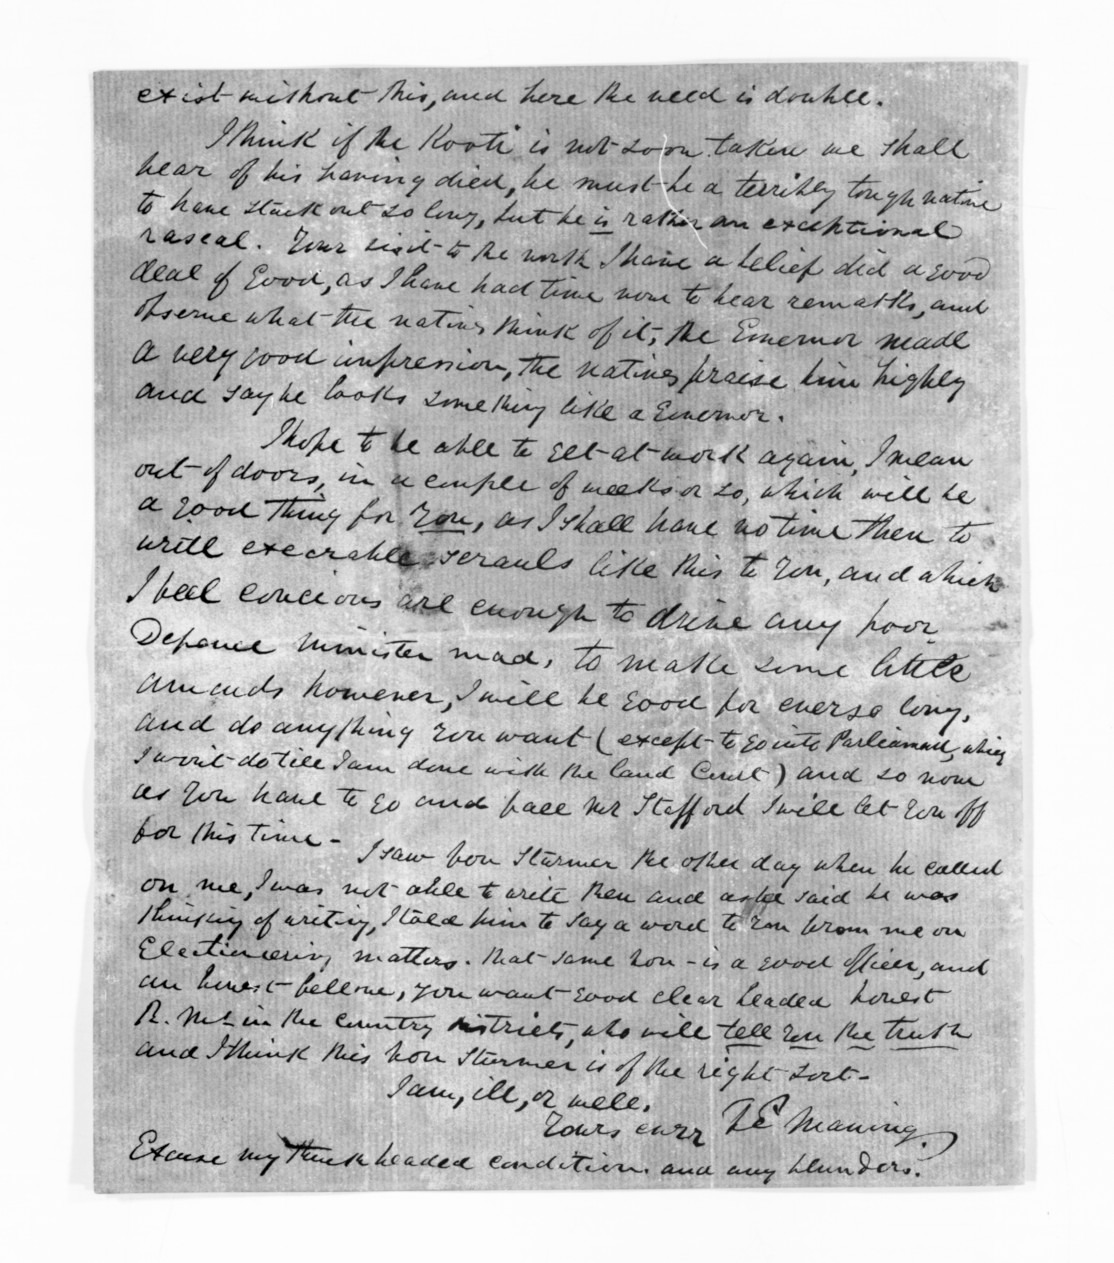 exist without this, and here the need is double.
I think if the Kooti is not soon taken we shall
hear of his having died, he must be a terribly tough native
to have stuck out so long, but he is rather an exceptional
rascal. Your visit to the north I have a belief did a good
deal of Good, as I have had time now to hear remarks, and
observe what the natives think of it, the Governor made
a very good impression, the natives praise him highly
and say he looks something like a Governor.
I hope to be able to get at work again, I mean
out of doors, in a couple of weeks or so, which will be
a good thing for you, as I shall have no time then to
write execrable scrauls like this to you, and which
I feel concious are enough to drive any poor
Defence minister mad, to make some little
amends however, I will be good for ever so long,
and do anything you want (except to go into Parliament, which
I won't do till I am done with the land Court) and so now
as you have to go and face Mr Stafford I will let you off
for this time -
I saw von Sturmer the other day when he called
on me, I was not able to write then and as he said he was
thinking of writing, I told him to say a word to you from me on
Electioneering matters. that same von - is a good officer, and
an honest fellow, you want good clear headed honest
R. Ms in the country districts, who will tell you the truth
and I think this von Sturmer is of the right sort -
I am, ill, or well,
Yours
F E Maning.
Excuse my thick headed condition. and any blunders.